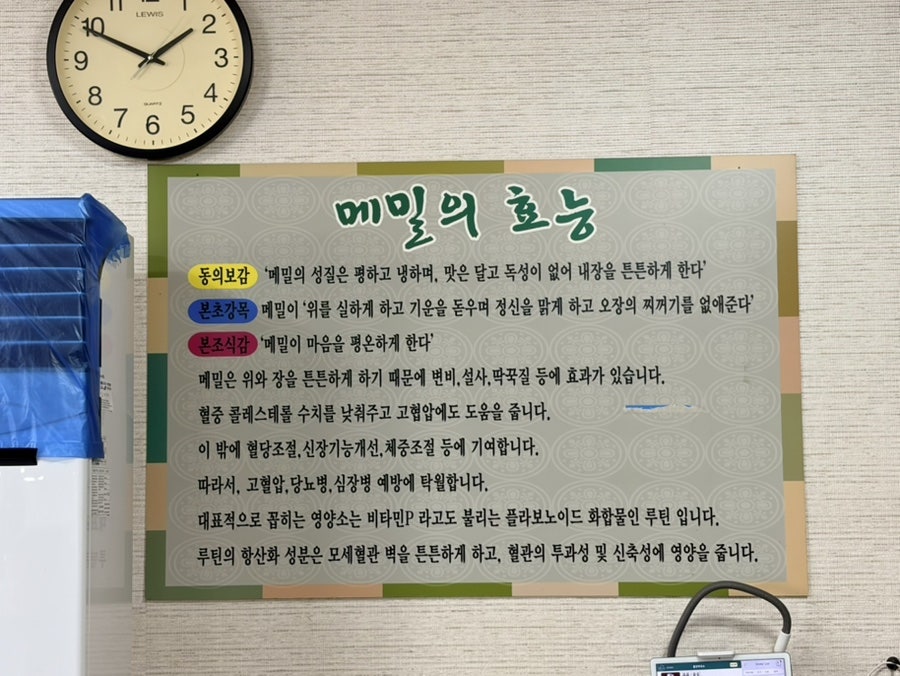 LEWIS
10 2
9 3
8 4
7 6 5
QUARTZ
메밀의 효능
동의보감 '메밀의 성질은 평하고 냉하며, 맛은 달고 독성이 없어 내장을 튼튼하게 한다'
본초강목 메밀이 '위를 실하게 하고 기운을 돋우며 정신을 맑게 하고 오장의 찌꺼기를 없애준다'
본조식감 '메밀이 마음을 평온하게 한다'
메밀은 위와 장을 튼튼하게 하기 때문에 변비,설사,딱꾹질 등에 효과가 있습니다.
혈중 콜레스테롤 수치를 낮춰주고 고혈압에도 도움을 줍니다.
이 밖에 혈당조절,신장기능개선,체중조절 등에 기여합니다.
따라서, 고혈압,당뇨병,심장병 예방에 탁월합니다.
대표적으로 꼽히는 영양소는 비타민P 라고도 불리는 플라보노이드 화합물인 루틴 입니다.
루틴의 항산화 성분은 모세혈관 벽을 튼튼하게 하고, 혈관의 투과성 및 신축성에 영양을 줍니다.